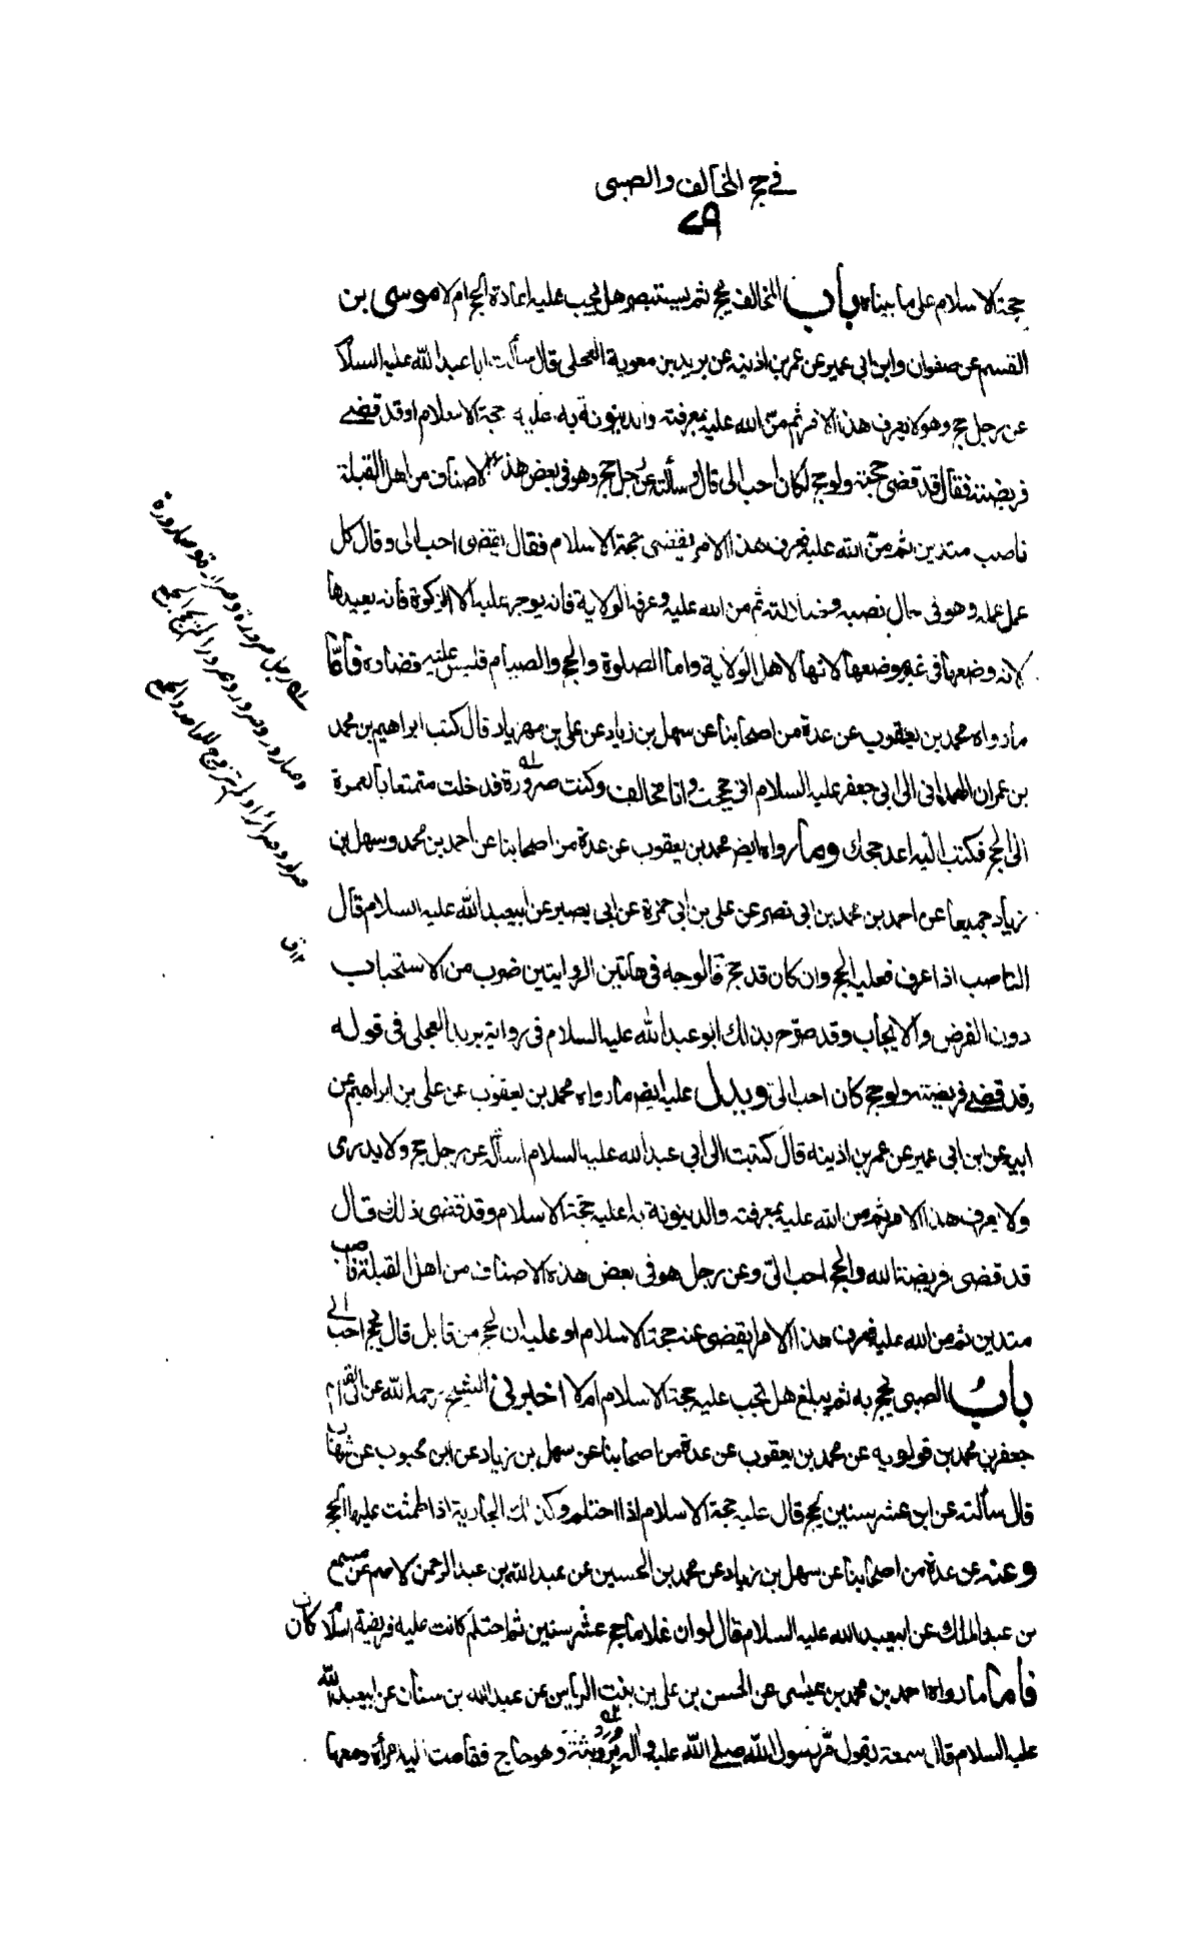 في حج المخالف والصبي
٧٩
حجة الاسلام على ما بيناه باب المخالف يحج ثم يستبصر هل يجب عليه اعادة الحج ام لا موسى بن
القسم عن صفوان وابن ابى عمير عن عمر بن اذينه عن بريد بن معوية العجلى قال سألت ابا عبد الله عليه السلام
عن رجل حج وهو لا يعرف هذا الامر ثم منّ الله عليه بمعرفته والدينونة به عليه حجة الاسلام او قد قضى
فريضته فقال قد قضى حجته ولو حج لكان احب الى قال وسألته عن رجل حج وهو فى بعض هذه الاصناف من اهل القبلة
ناصب متدين ثم منّ الله عليه فعرف هذا الامر يقضى حجة الاسلام فقال يقضى احب الى وقال كل
عمل عمله وهو فى حال نصبه وضلالته ثم من الله عليه وعرفه الولاية فانه يوجر عليه الا الزكوة فانه يعيدها
لانه وضعها فى غير موضعها لانها لاهل الولاية واما الصلوة والحج والصيام فليس عليه قضاء فأمّا
ما رواه محمد بن يعقوب عن عدة من اصحابنا عن سهل بن زياد عن على بن مهزيار قال كتب ابراهيم بن محمد
بن عمران الهمدانى الى ابى جعفر عليه السلام انى حججت وانا مخالف وكنت صرورة فدخلت متمتعا بالعمرة
الى الحج فكتب اليه اعد حجك وما رواه ايضا محمد بن يعقوب عن عدة من اصحابنا عن احمد بن محمد وسهل بن
زياد جميعا عن احمد بن محمد بن ابى نصر عن على بن ابى حمزة عن ابى بصير عن ابيعبد الله عليه السلام قال
الناصب اذا عرف فعليه الحج وان كان قد حج فالوجه فى هاتين الروايتين ضرب من الاستحباب
دون الفرض والايجاب وقد صرّح بذلك ابو عبد الله عليه السلام فى رواية بريد العجلى فى قوله
وقد قضى فريضته ولو حج كان احب الىّ ويدل عليه ايضا ما رواه محمد بن يعقوب عن على بن ابراهيم عن
ابيه عن ابن ابى عمير عن عمر بن اذينه قال كتبت الى ابي عبد الله عليه السلام اسأله عن رجل حج ولا يدرى
ولا يعرف هذا الامر ثم من الله عليه بمعرفته والدينونة به اعليه حجّة الاسلام وقد قضى ذلك قال
قد قضى فريضة الله والحج احب الىّ وعن رجل هو فى بعض هذه الاصناف من اهل القبلة ناصب
متدين ثم من الله عليه فعرف هذا الامر ايقضى عنه حجة الاسلام او عليه ان يحج من قابل قال يحج احب الي
باب الصبى يحج به ثم يبلغ هل تجب عليه حجة الاسلام ام لا اخبرنى الشيخ رحمه الله عن ابى القاسم
جعفر بن محمد بن قولويه عن محمد بن يعقوب عن عدة من اصحابنا عن سهل بن زياد عن ابن محبوب عن شهاب
قال سألته عن ابن عشر سنين يحج قال عليه حجة الاسلام اذا احتلم وكذلك الجارية اذا طمثت عليها الحج
وعنه عن عدة من اصحابنا عن سهل بن زياد عن محمد بن الحسين عن عبد الله بن عبد الرحمن الاصم عن مسمع
بن عبد الملك عن ابيعبد الله عليه السلام قال لو ان غلاما حج عشر سنين ثم احتلم كانت عليه فريضة الاسلام
فأما ما رواه احمد بن محمد بن عيسى عن الحسن بن على بن بنت الياس عن عبد الله بن سنان عن ابيعبد الله
عليه السلام قال سمعته يقول مرّ رسول الله صلى الله عليه واله برويثة وهو حاج فقامت اليه امرأة ومعها
رجل صرورة
ولم يتزوج للواحد والجمع